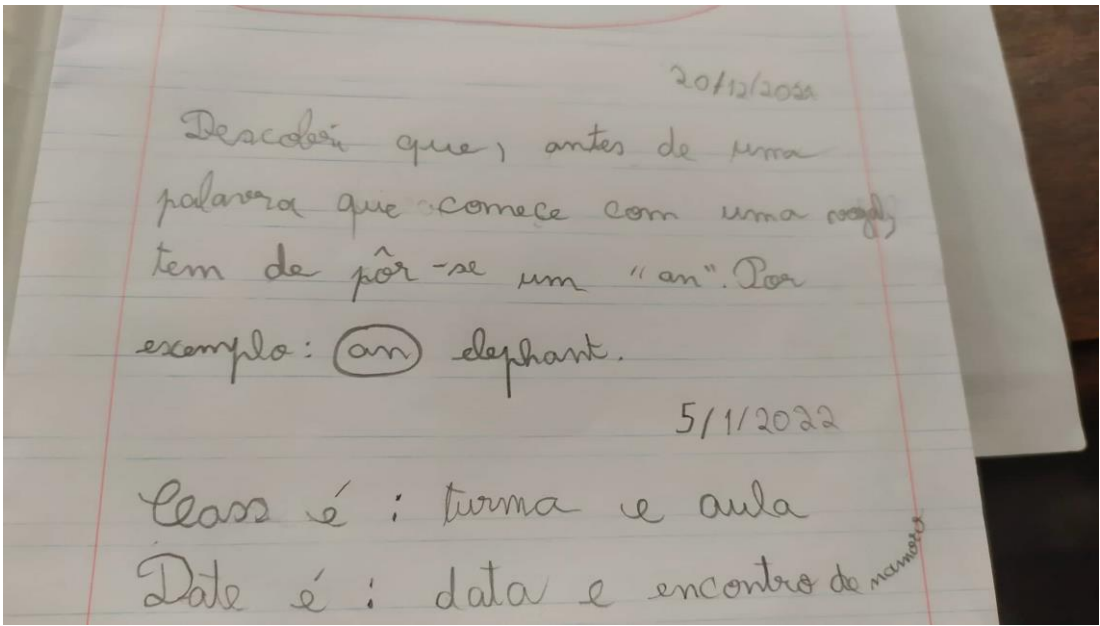 20/12/2021
Descobri que, antes de uma
palavra que comece com uma vogal,
tem de pôr-se um "an". Por
exemplo: an elephant.
5/1/2022
Class é : turma e aula
Date é : data e encontro de namoro